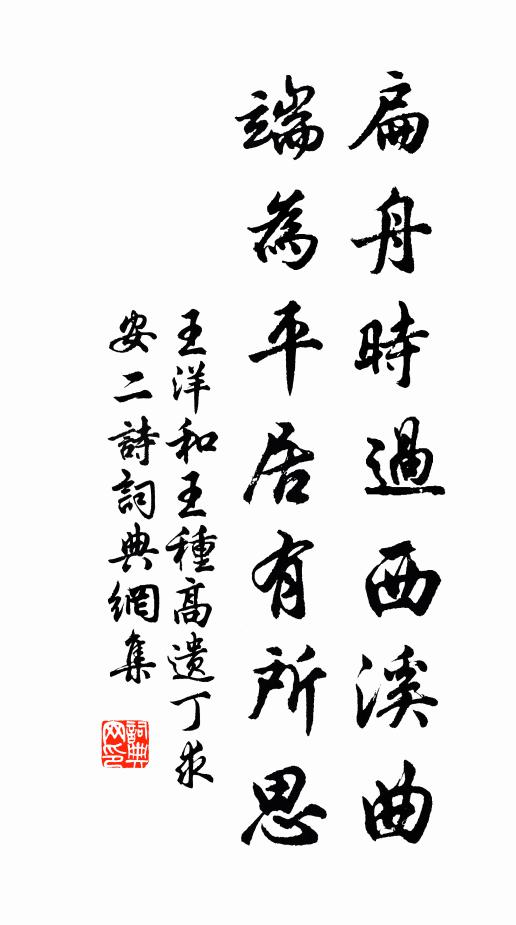 扁舟時過西溪曲
端為平居有所思
王洋和王種高遺丁求
安二詩詞典網集
詞典網印